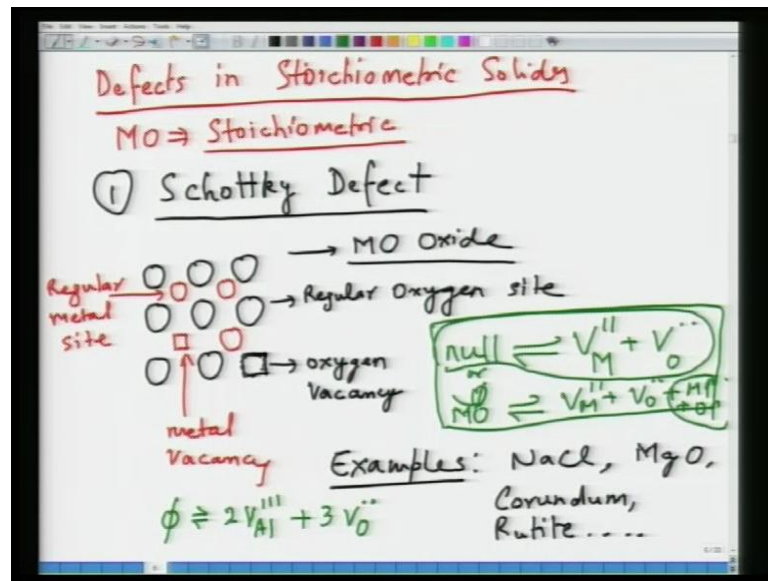 Defects in Stoichiometric Solids
MO ⇒ Stoichiometric
① Schottky Defect
→ MO Oxide
Regular metal site
→ Regular Oxygen site
→ oxygen Vacancy
metal Vacancy
null ⇌ V_M'' + V_O··
or
MO ⇌ V_M'' + V_O·· +
Examples: NaCl, MgO,
Corundum,
Rutite....
φ ⇌ 2 V_Al''' + 3 V_O··